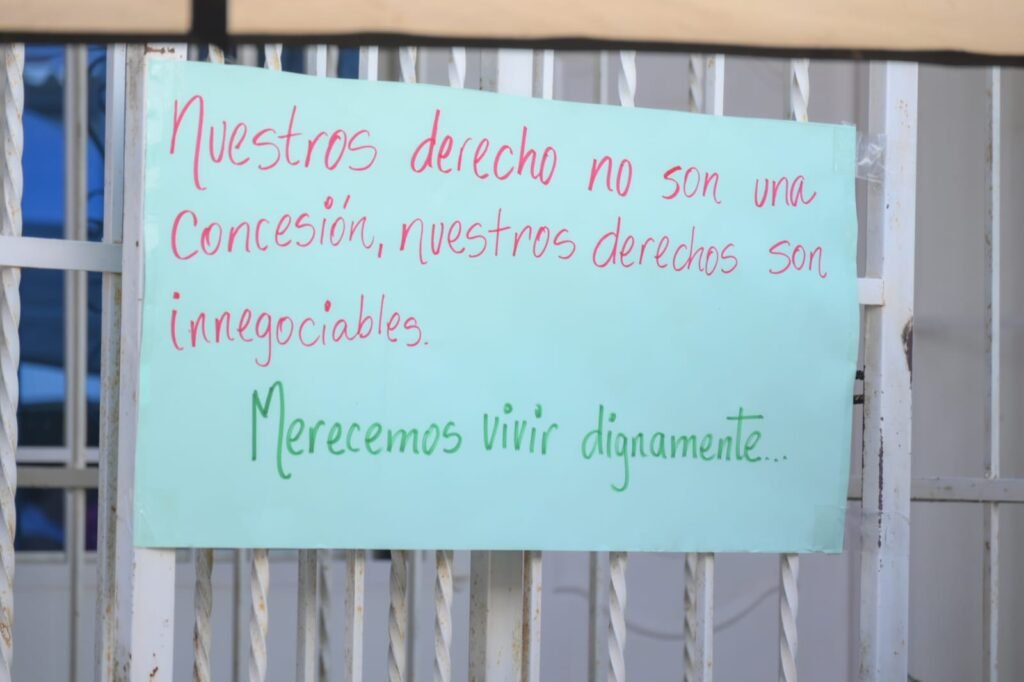 Nuestros derecho no son una
Concesión, nuestros derechos son
innegociables.
Merecemos vivir dignamente...